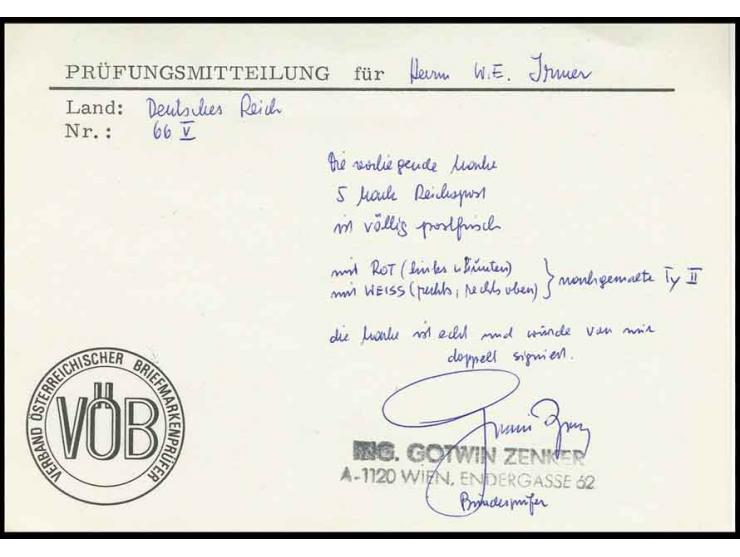 PRÜFUNGSMITTEILUNG für Herrn W.E. Irmer
Land: Deutsches Reich
Nr.: 66 V
Die vorliegende Marke
5 Mark Reichspost
ist völlig postfrisch
mit ROT (links u. unten)
mit WEISS (rechts, rechts oben) } nachgemalte Ty II
die Marke ist echt und wurde von mir
doppelt signiert.
VERBAND ÖSTERREICHISCHER BRIEFMARKENPRÜFER
VÖB
ING. GOTWIN ZENKER
A-1120 WIEN, ENDERGASSE 62
Bundesprüfer